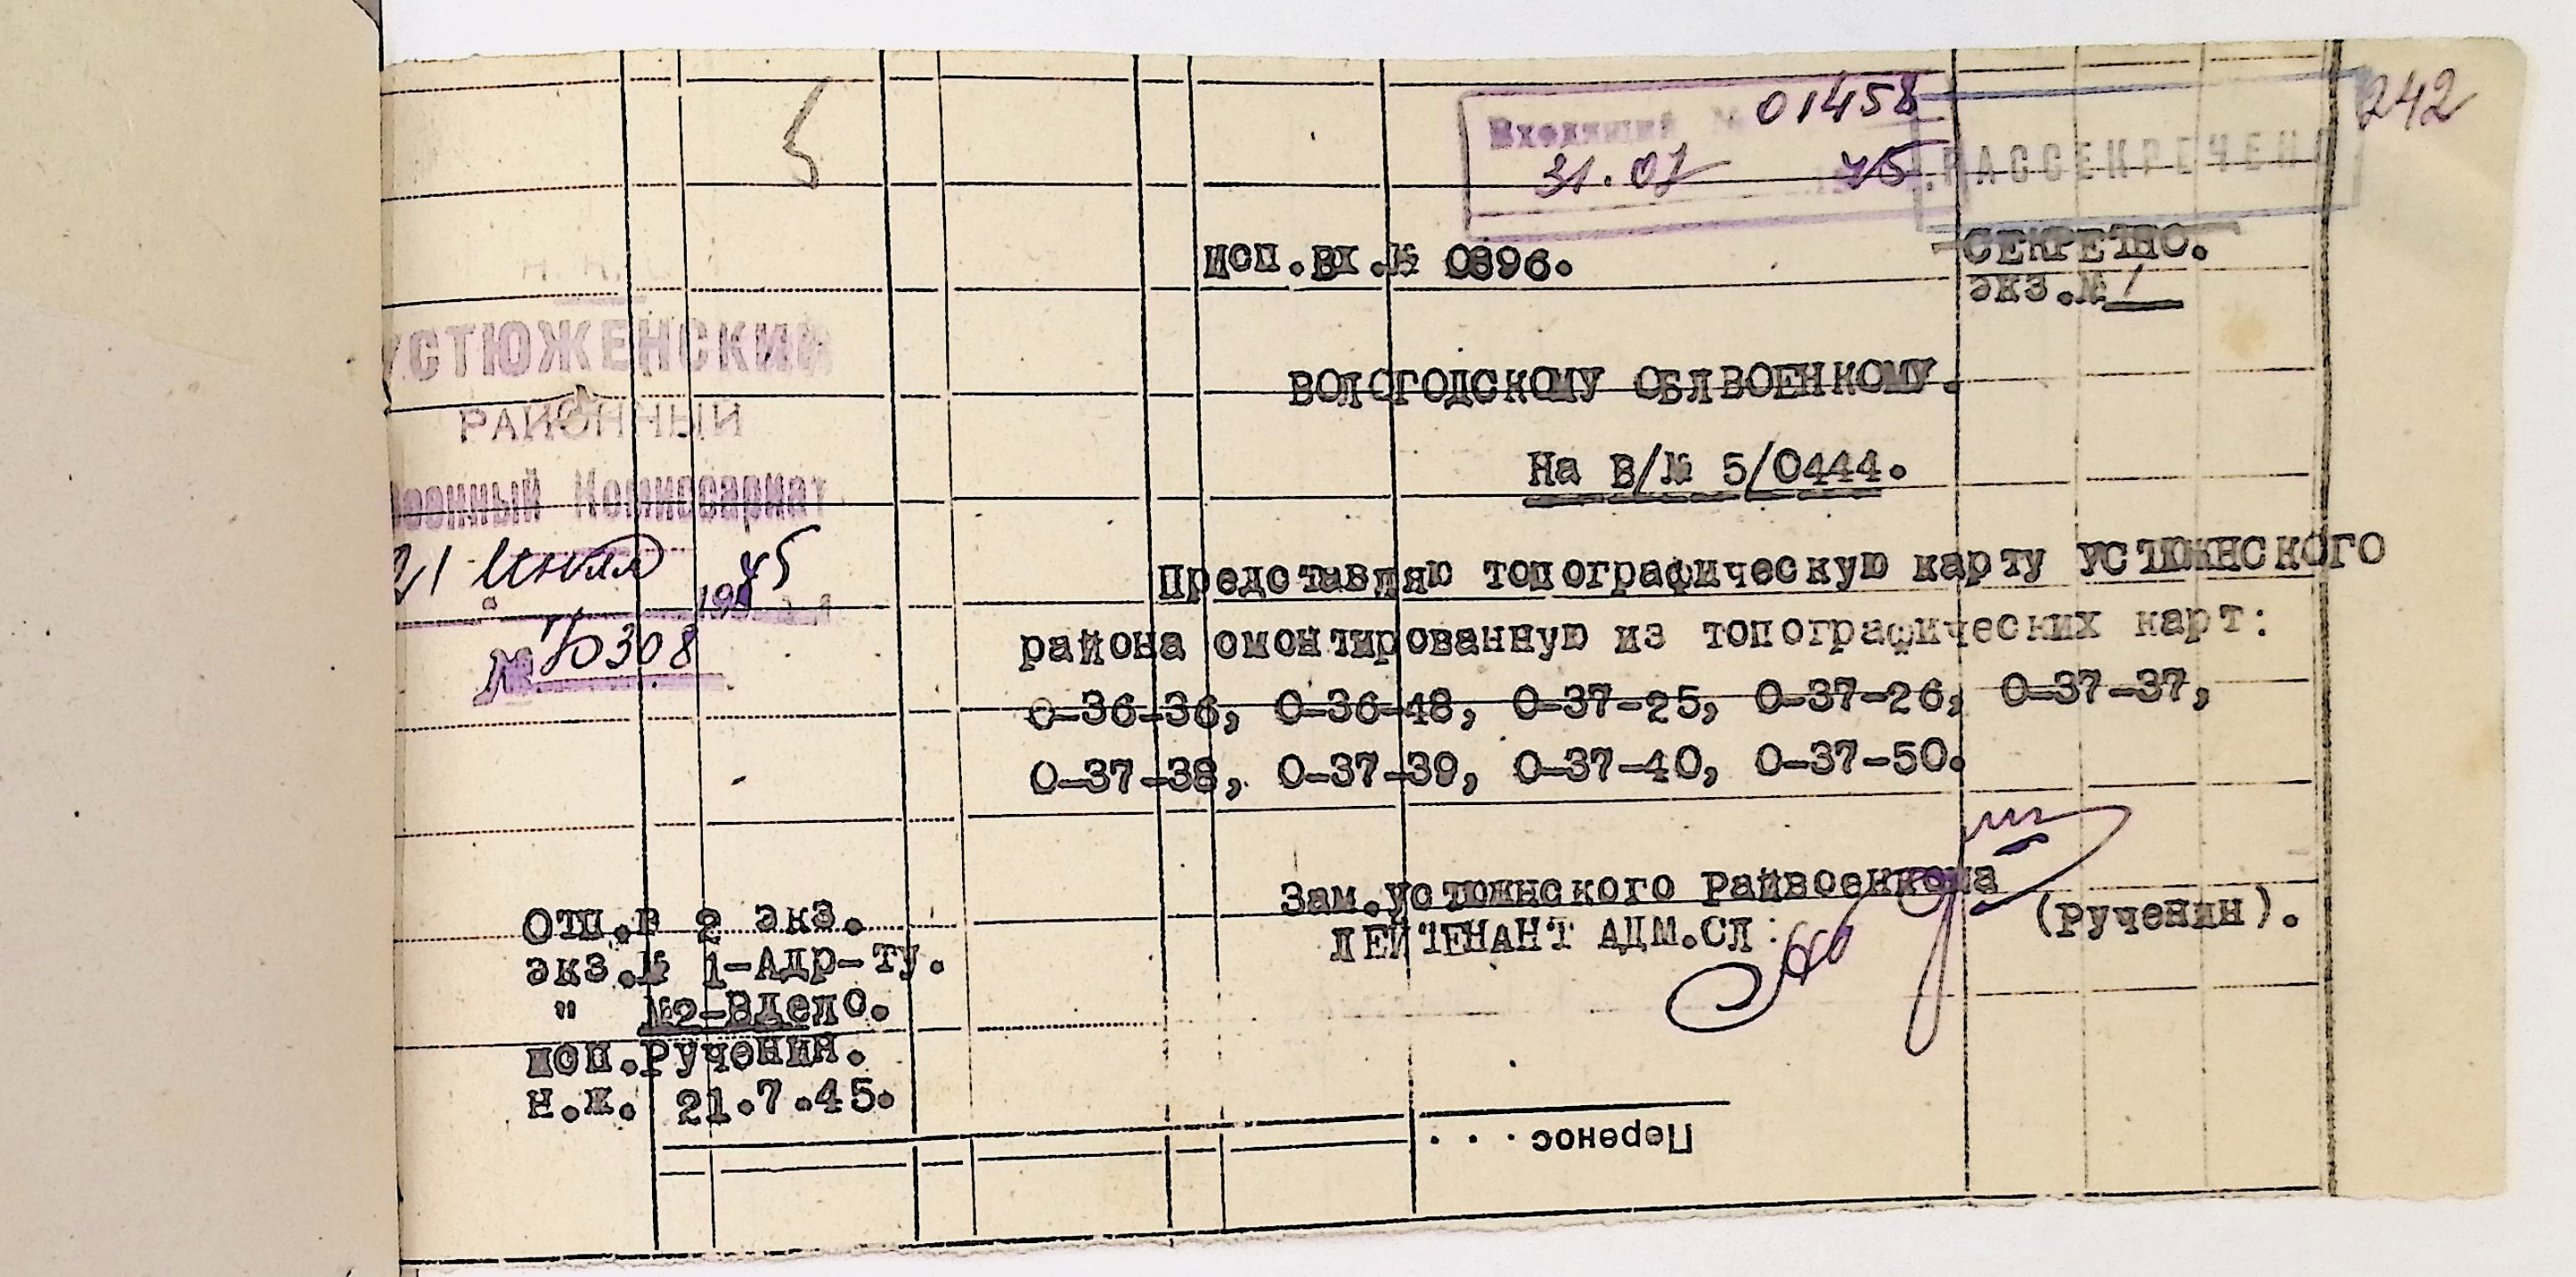 242
Входящий № 01458
31.07 45
РАССЕКРЕЧЕНО
5
исп.вх.№ 0896.
СЕКРЕТНО.
экз.№ 1
Н. К. О.
УСТЮЖЕНСКИЙ
РАЙОННЫЙ
Военный Комиссариат
21 июля 1945
№ 5308
ВОЛОГОДСКОМУ ОБЛВОЕНКОМУ.
На В/№ 5/0444.
Представляю топографическую карту УСТЮЖНСКОГО
района смонтированную из топографических карт:
0-36-36, 0-36-48, 0-37-25, 0-37-26, 0-37-37,
0-37-38, 0-37-39, 0-37-40, 0-37-50.
Зам.устюжнского Райвоенкома
ЛЕЙТЕНАНТ АДМ.СЛ: (Рученин).
Отп.в 2 экз.
экз.№ 1-Адр-ту.
" №2-Вдело.
исп.Рученин.
н.ж. 21.7.45.
Перенос . . .